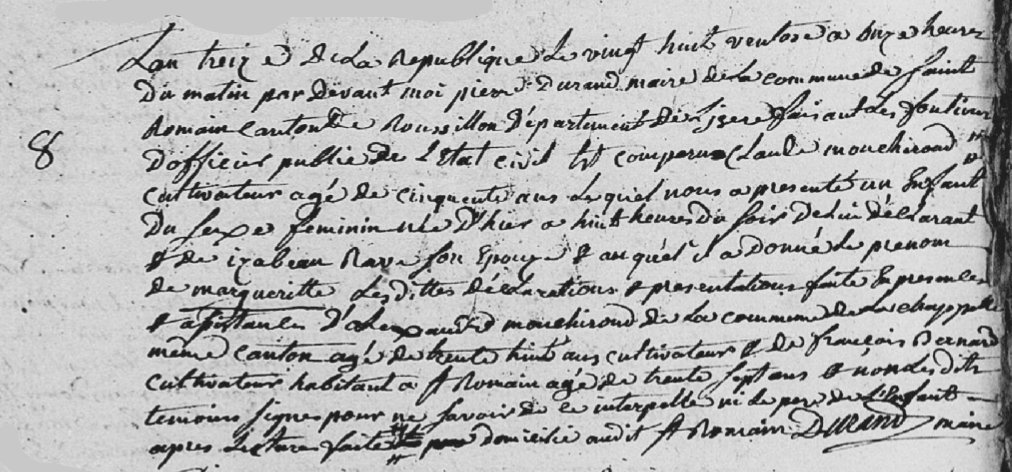 Lan treize de La Republique Le vingt huit ventose a onze heures
Du matin par devant moi pierre Durand maire de La commune de saint
Romain Canton de Roussillon Département de L'isere faisant Les fontions
8
D'officier public de L'Etat civil est comparu Claude mouchiroud
cultivateur agé de cinquante ans Lequel nous a presenté un Enfant
Du sexe feminin née D'hier a huit heures du soir De Lui déclarant
& de izabeau Rave son Epouze & auquel il a donné Le prenom
de margueritte Lesdittes déclarations & presentations faite En presences
& assistances D'alexandre mouchiroud de La commune de La chappelle
même Canton agé de trente huit ans cultivateur & de françois Bernard
cultivateur habitant a St Romain agé de trente sept ans & nons Lesdits
temoins signes pour ne savoir de ce interpelle ni Le pere de L'Enfant
apres Lecture faite domicilié audit St Romain Durand maire